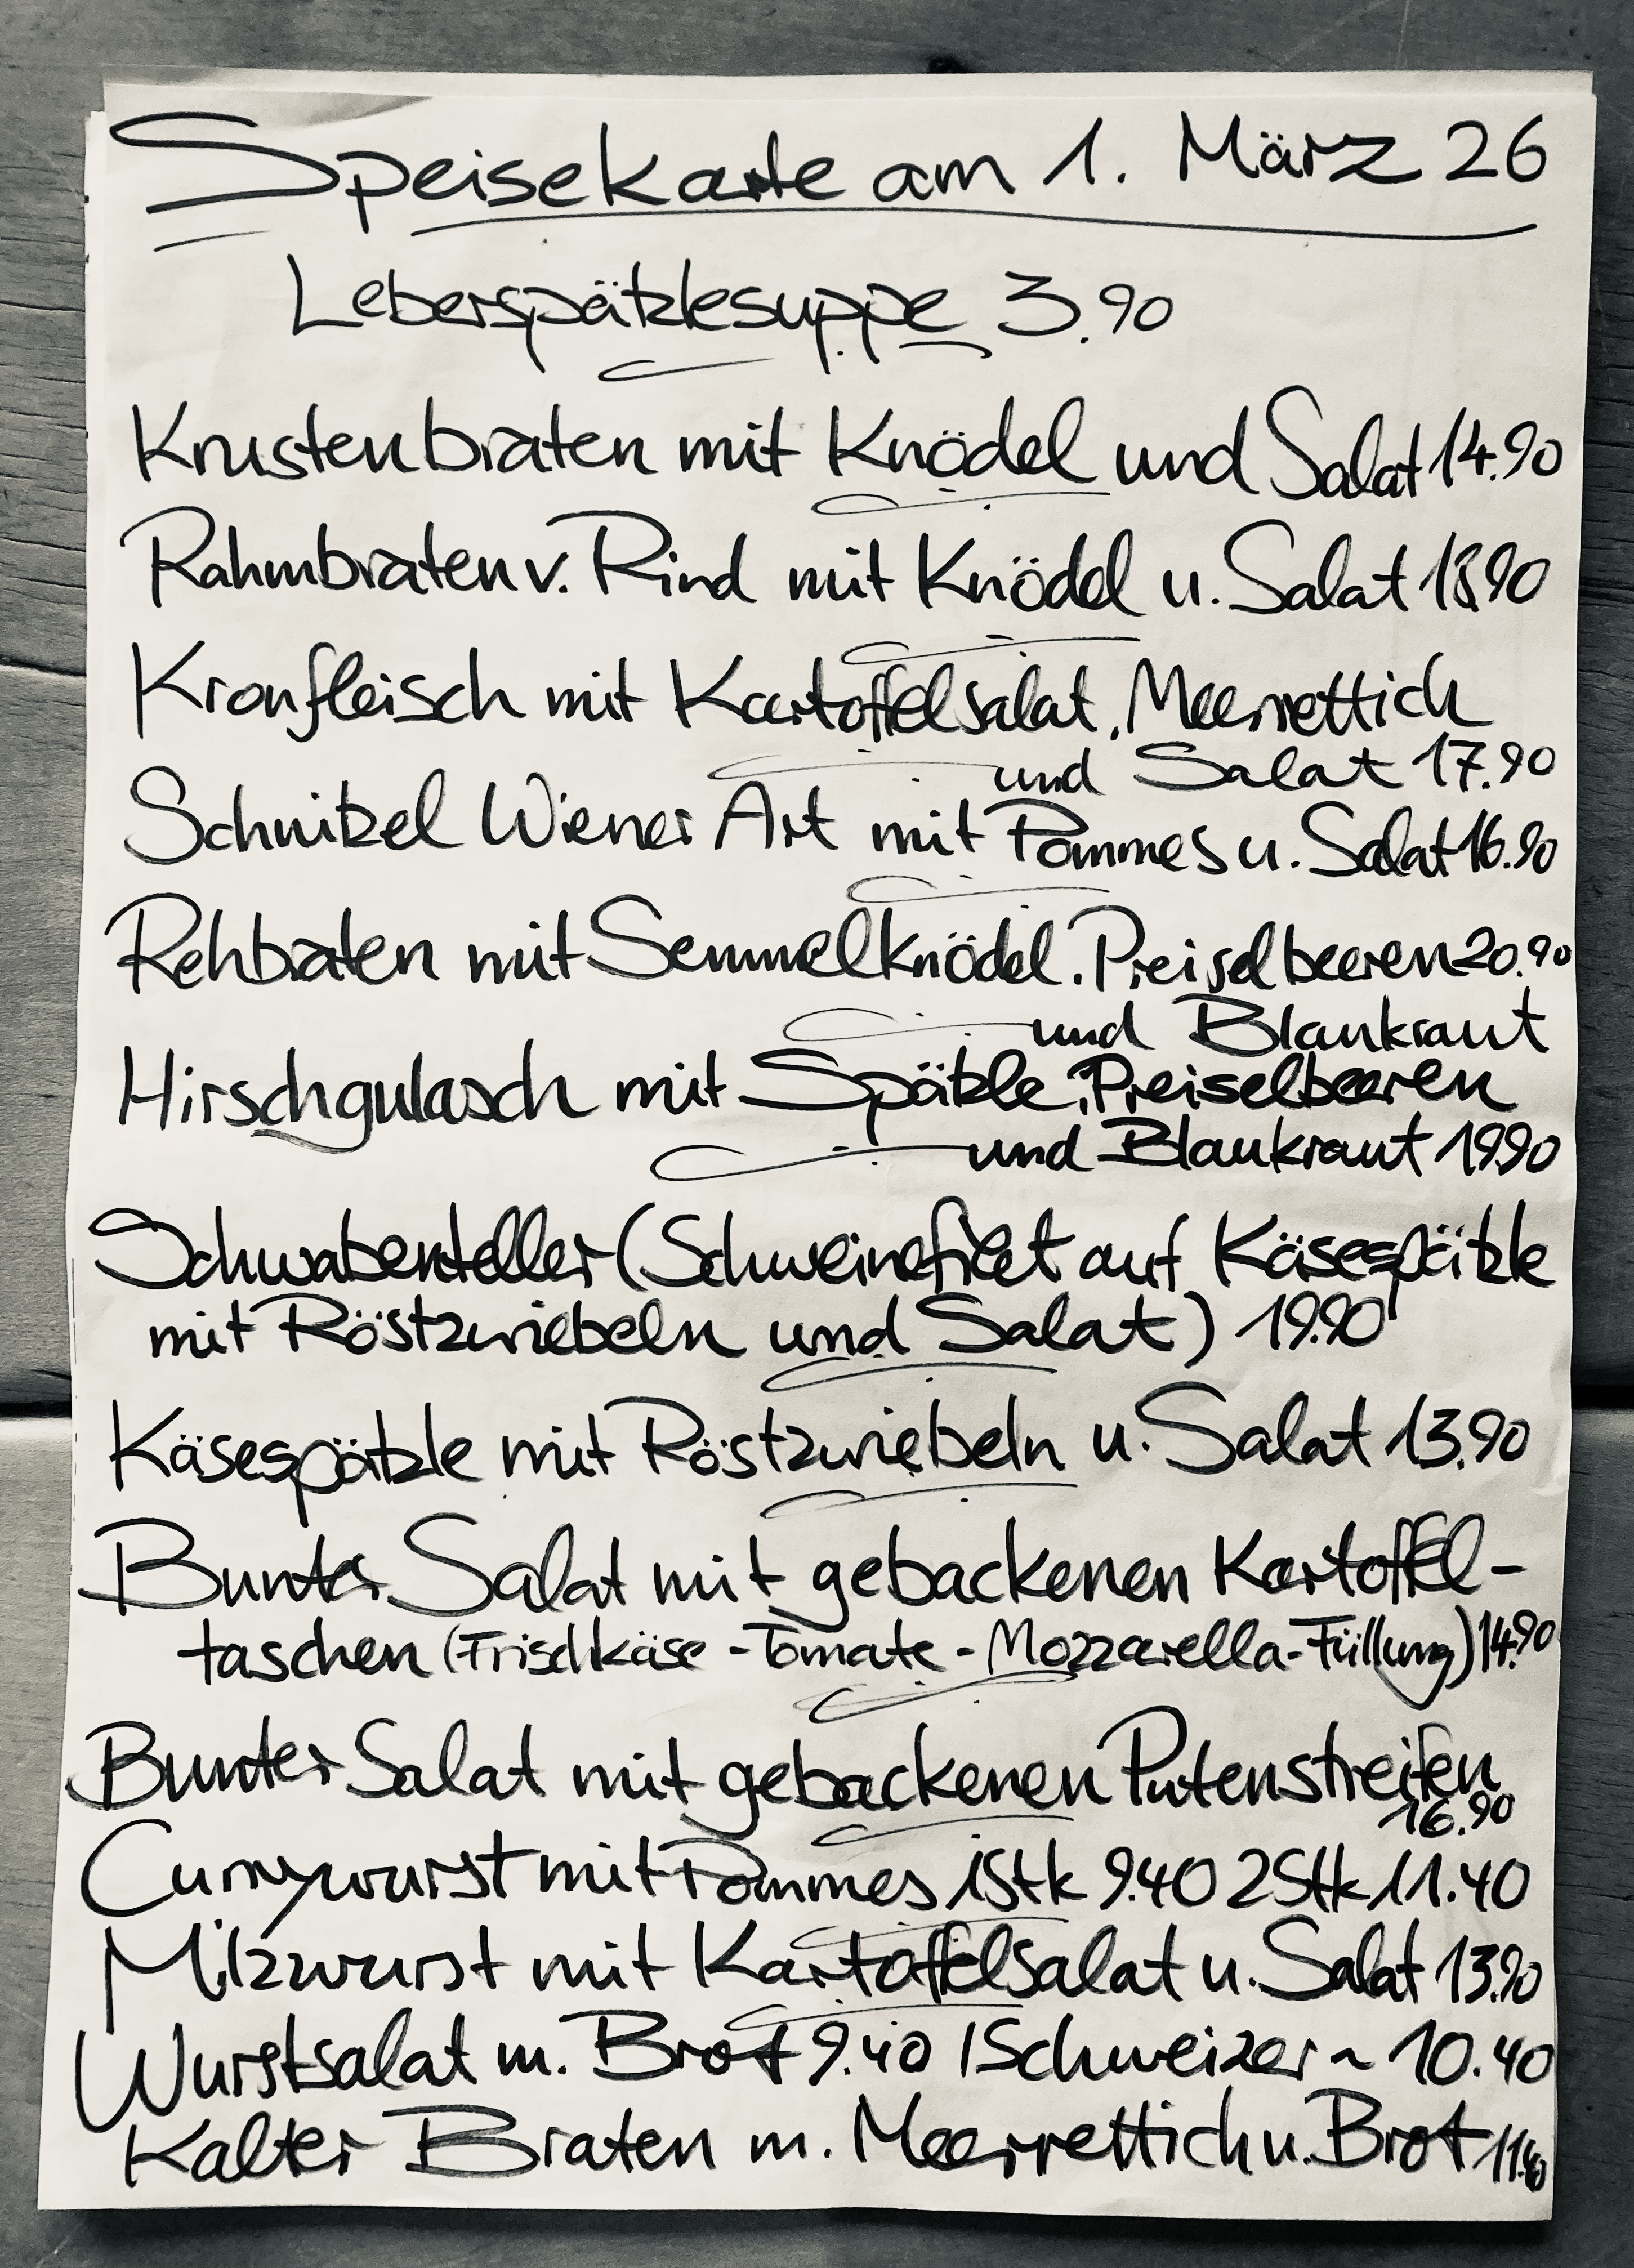 Speisekarte am 1. März 26
Leberspätzlesuppe 3.90
Krustenbraten mit Knödel und Salat 14.90
Rahmbraten v. Rind mit Knödel u. Salat 18.90
Kronfleisch mit Kartoffelsalat, Meerrettich
und Salat 17.90
Schnitzel Wiener Art mit Pommes u. Salat 16.90
Rehbraten mit Semmelknödel, Preiselbeeren 20.90
und Blaukraut
Hirschgulasch mit Spätzle, Preiselbeeren
und Blaukraut 19.90
Schwabenteller (Schweinefilet auf Käsespätzle
mit Röstzwiebeln und Salat) 19.90
Käsespätzle mit Röstzwiebeln u. Salat 13.90
Bunter Salat mit gebackenen Kartoffel-
taschen (Frischkäse-Tomate-Mozzarella-Füllung) 14.90
Bunter Salat mit gebackenen Putenstreifen
16.90
Currywurst mit Pommes 1Stk 9.40 2Stk 11.40
Milzwurst mit Kartoffelsalat u. Salat 13.90
Wurstsalat m. Brot 9.40 / Schweizer ~ 10.40
Kalter Braten m. Meerrettich u. Brot